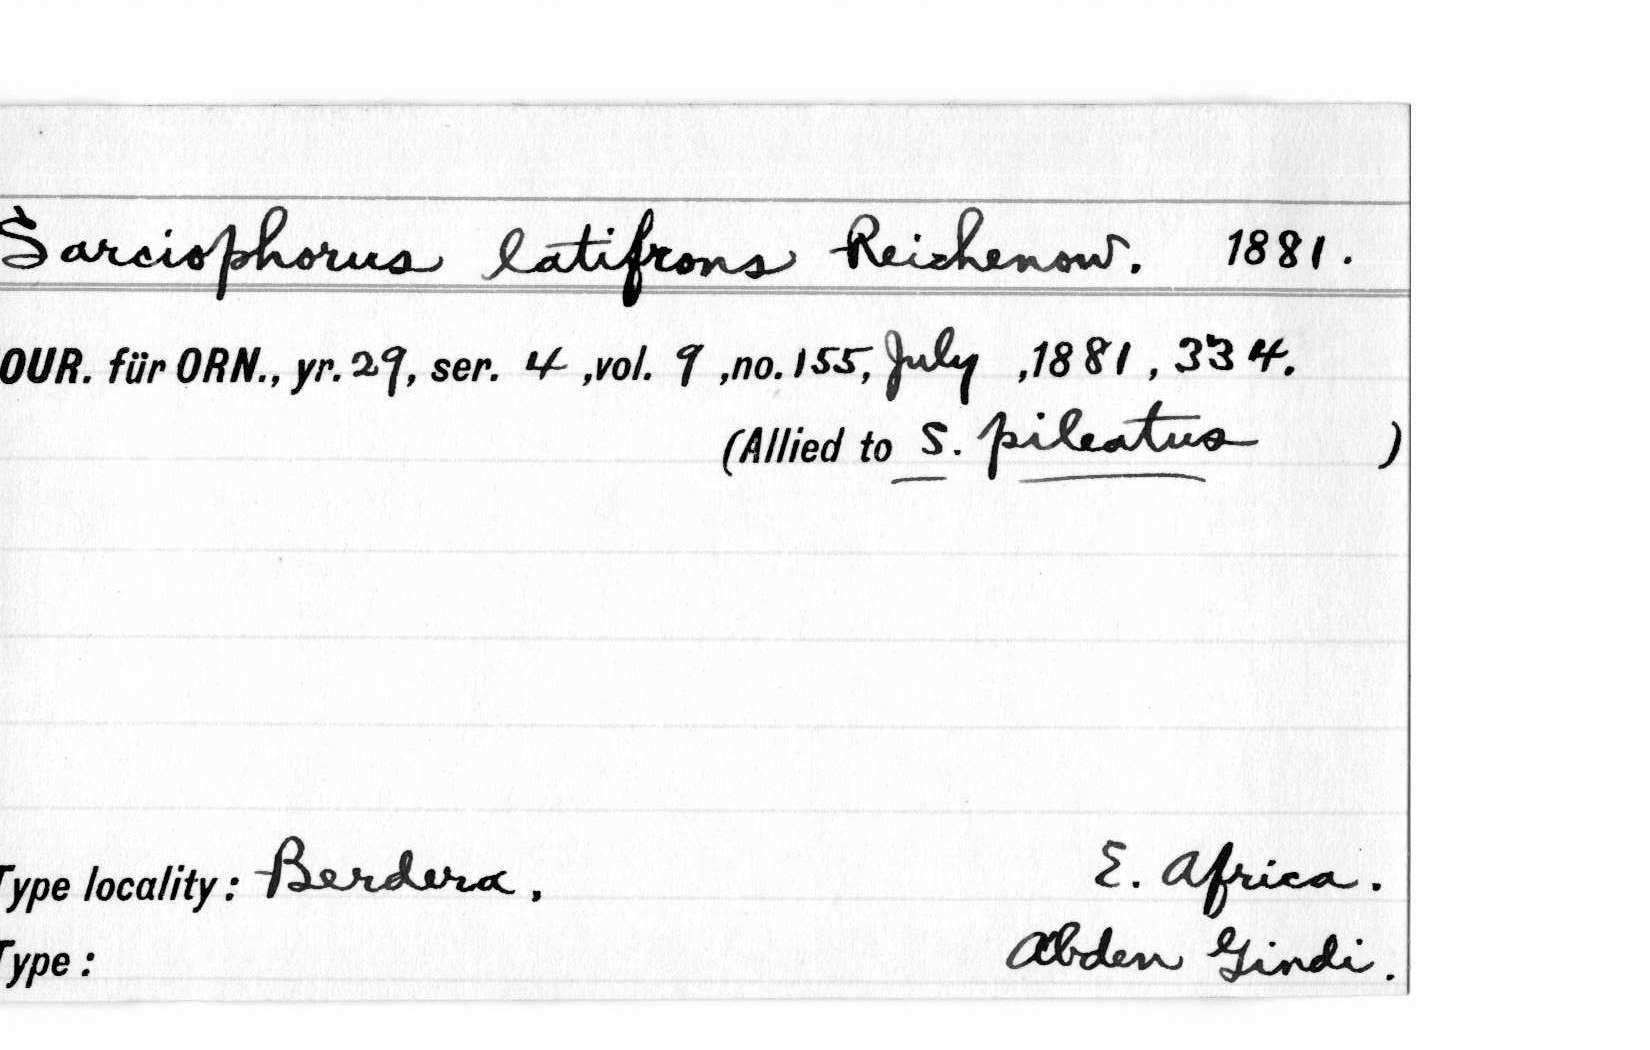 Sarciophorus latifrons Reichenow. 1881.
OUR. für ORN., yr. 29, ser. 4, vol. 9, no. 155, July, 1881, 334.
(Allied to S. pileatus)
Type locality: Berdera, E. Africa.
Type: Abden Gindi.